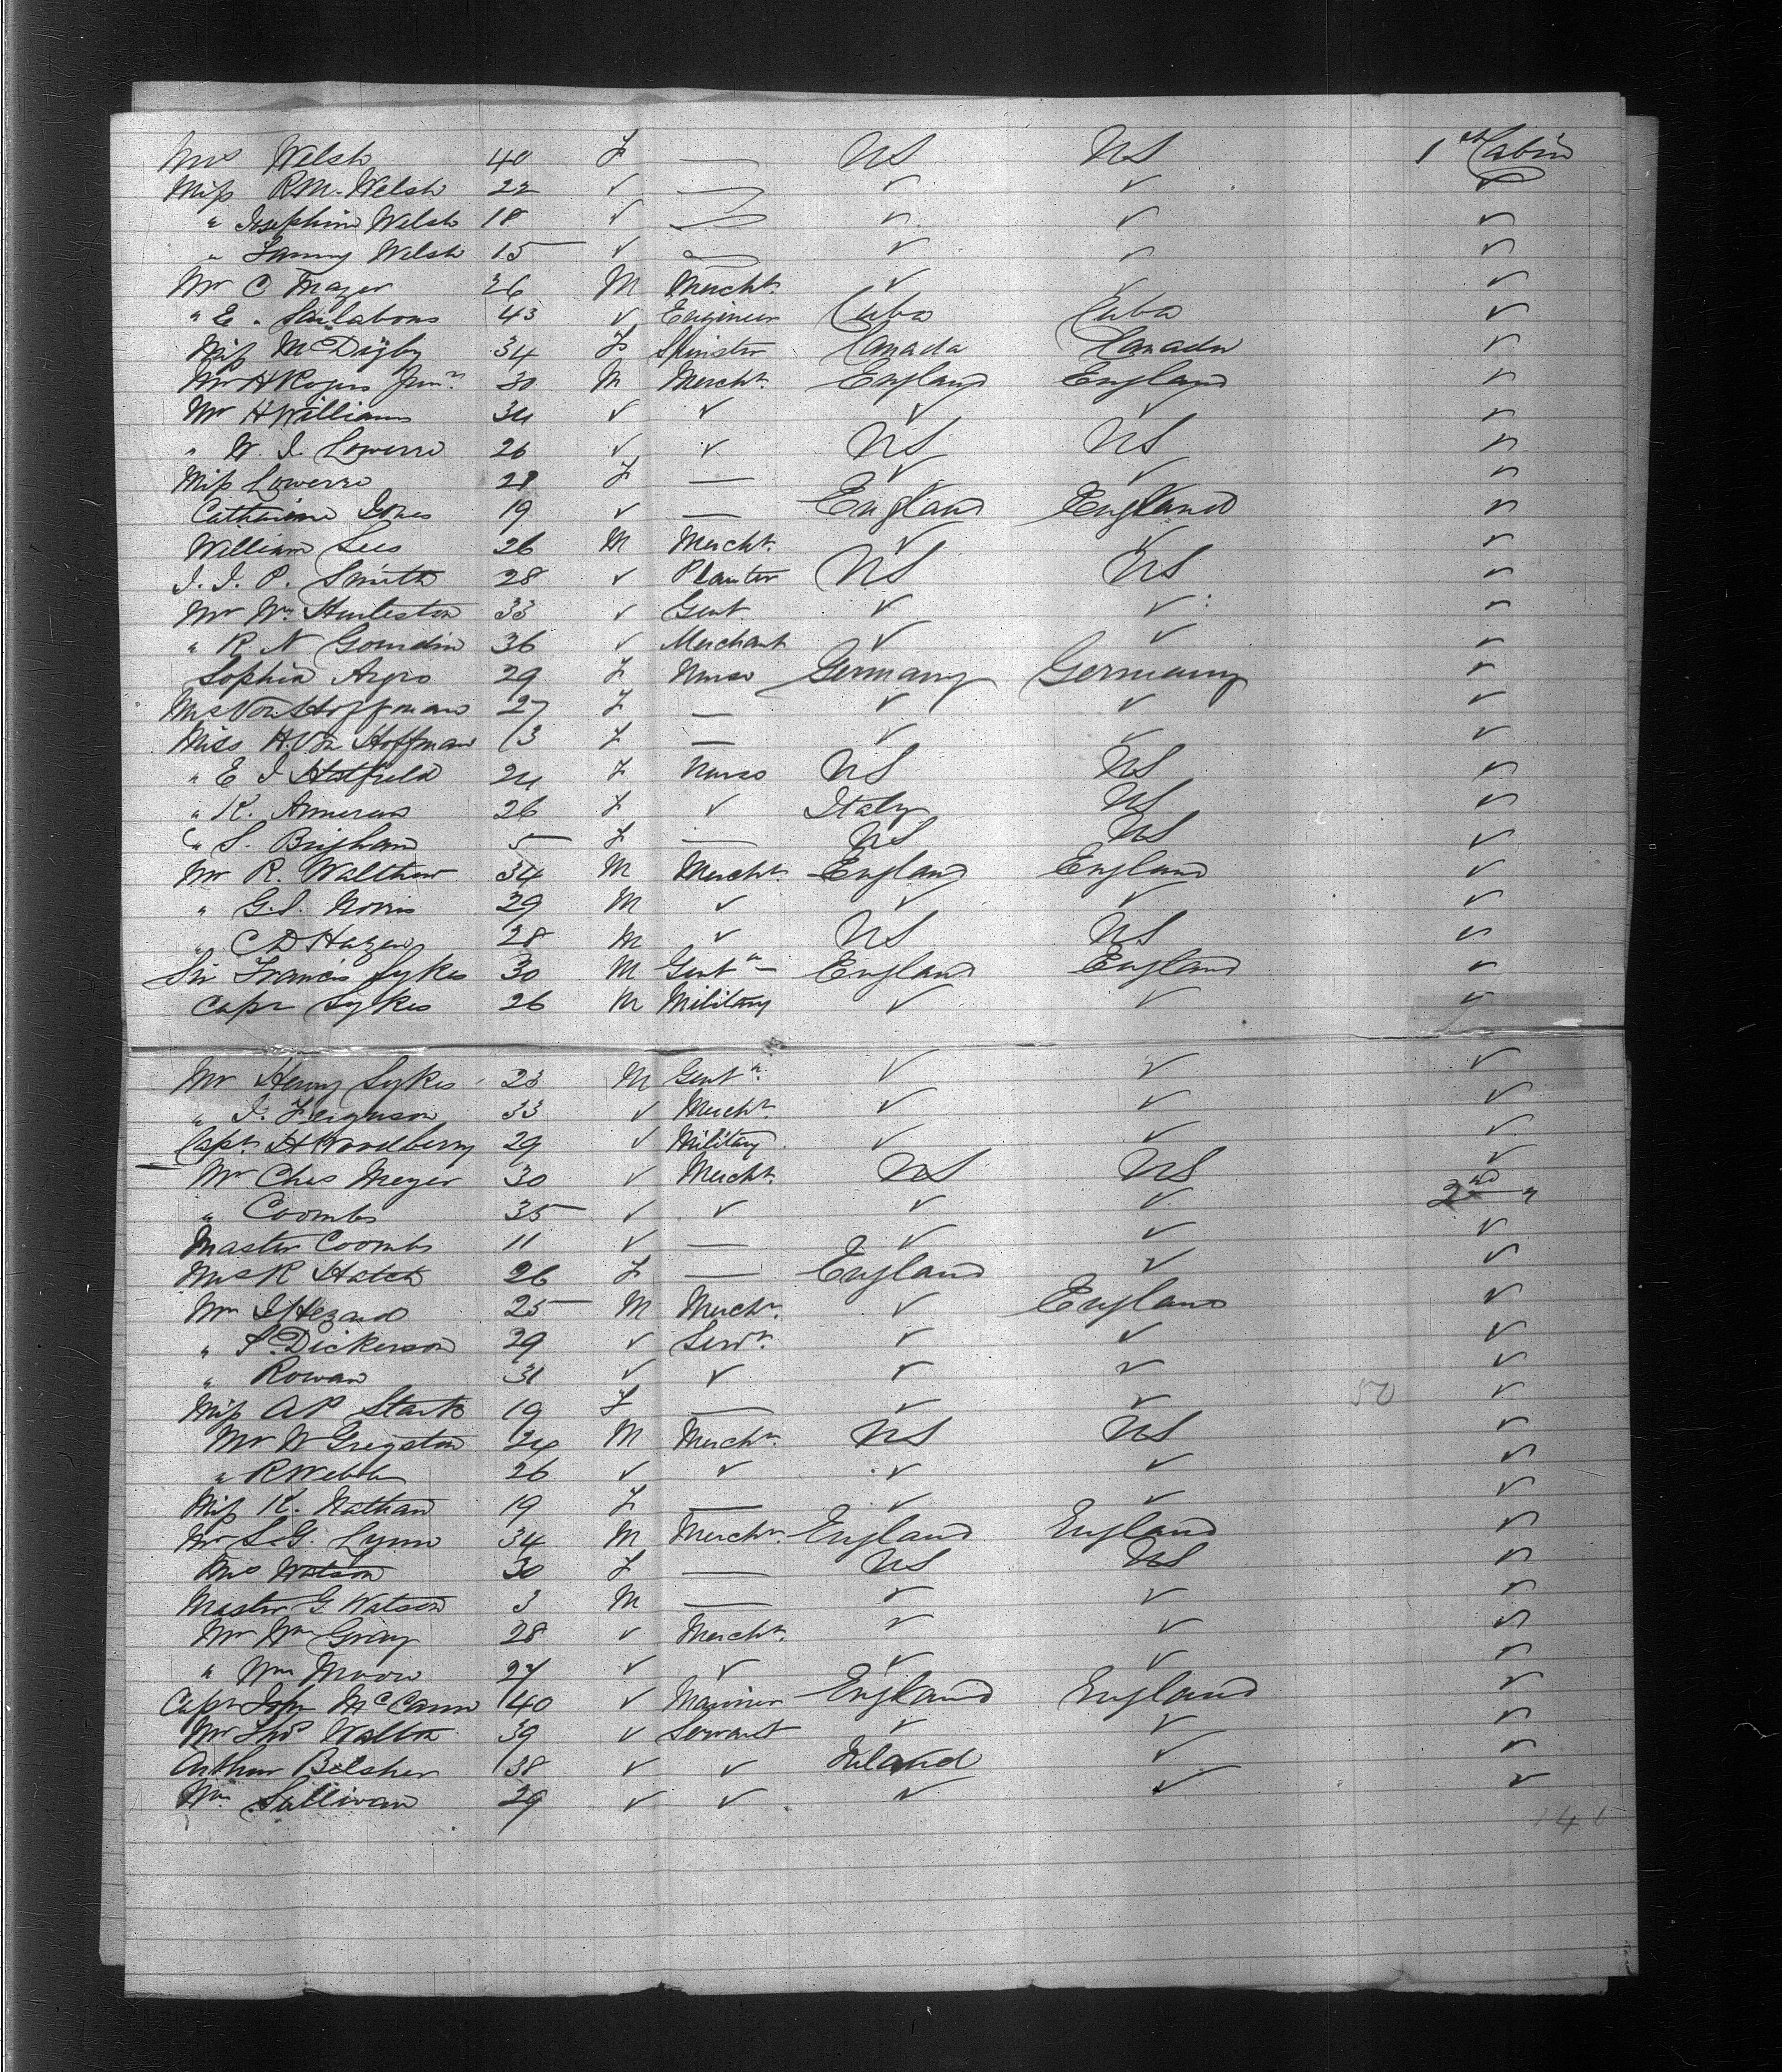 Mrs Welsh 40 F — US US 1st Cabin
Miss R M. Welsh 22 ✓ — ✓ ✓ ✓
" Josephine Welsh 18 ✓ — ✓ ✓ ✓
" Fanny Welsh 15 ✓ — ✓ ✓ ✓
Mr C Mayer 26 M Mercht. ✓ ✓ ✓
" E. 43 ✓ Engineer Cuba Cuba ✓
Miss McDigby 34 F Spinster Canada Canada ✓
Mr H Rogers Junr. 30 M Mercht. England England ✓
Mr H Williams 34 ✓ ✓ ✓ ✓ ✓
" W. J. Lowerre 26 ✓ ✓ US US ✓
Miss Lowerre 28 F — ✓ ✓ ✓
Catharine Jones 19 ✓ — England England ✓
William Lees 26 M Mercht. ✓ ✓ ✓
J. J. P. Smith 28 ✓ Planter US US ✓
Mr Wm. Hurleston 33 ✓ Gent ✓ ✓ ✓
" R N Gourdin 36 ✓ Merchant ✓ ✓ ✓
Sophia 29 F Nurse Germany Germany ✓
Mrs Von Hoffman 27 F — ✓ ✓ ✓
Miss H. Von Hoffman 13 F — ✓ ✓ ✓
" E J Hatfield 24 F Nurse US US ✓
" K. 26 F ✓ Italy US ✓
" S. Brigham 5 F — US US ✓
Mr R. Walthew 34 M Mercht. England England ✓
" G. S. Norris 29 M ✓ ✓ ✓ ✓
" C D Hazen 28 M ✓ US US ✓
Sir Francis Sykes 30 M Gentn — England England ✓
Capt Sykes 26 M Military ✓ ✓ ✓
Mr Henry Sykes 23 M Gentn. ✓ ✓ ✓
" J. Ferguson 33 ✓ Mercht. ✓ ✓ ✓
Capt. H Woodberry 29 ✓ Military ✓ ✓ ✓
Mr Chas Meyer 30 ✓ Mercht. US US ✓
" Coombs 35 ✓ ✓ ✓ ✓ 2nd "
Master Coombs 11 ✓ — ✓ ✓ ✓
Mrs R Hatch 26 F — England ✓ ✓
Mr J Hezard 25 M Mercht. ✓ England ✓
" S. Dickerson 29 ✓ Servt. ✓ ✓ ✓
" Rowan 31 ✓ ✓ ✓ ✓ ✓
Miss A P Starks 19 F — ✓ ✓ 50 ✓
Mr W Gregston 24 M Mercht. US US ✓
" R Webb 26 ✓ ✓ ✓ ✓ ✓
Miss K. Nathan 19 F — ✓ ✓ ✓
Mr S. G. Lynn 34 M Mercht. England England ✓
Mrs Watson 30 F — US US ✓
Master G Watson 3 M — ✓ ✓ ✓
Mr Wm Gray 28 ✓ Mercht. ✓ ✓ ✓
" Wm Moore 27 ✓ ✓ ✓ ✓ ✓
Capt John McCann 40 ✓ Mariner England England ✓
Mr Thos Walton 39 ✓ Servant ✓ ✓ ✓
Arthur Belsher 38 ✓ ✓ Ireland ✓ ✓
Wm Sullivan 29 ✓ ✓ ✓ ✓ ✓